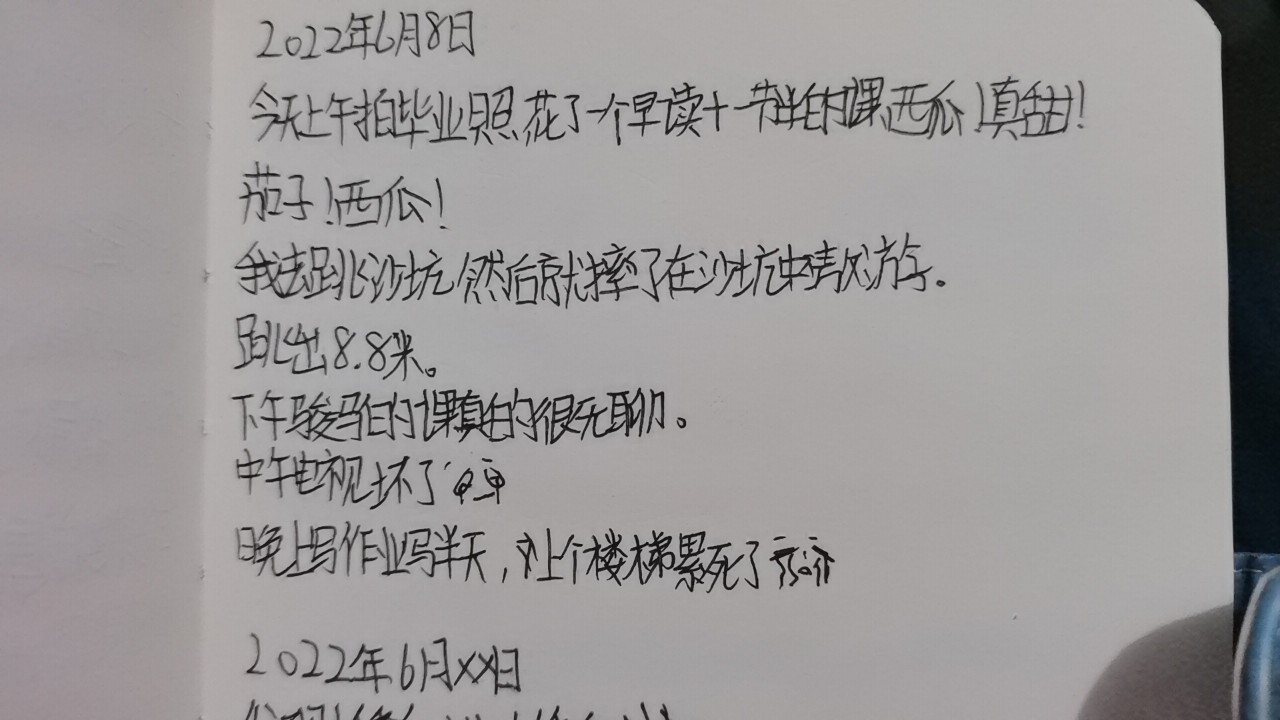 2022年6月8日
今天上午拍毕业照,花了一个早读十一节半的课,西瓜!真甜!
茄子!西瓜!
我去跳沙坑,然后就摔了在沙坑中
跳出8.8米。
下午骏骏的课真的很无聊。
中午电视坏了
晚上写作业写半天,上个楼梯累死了
2022年6月××日